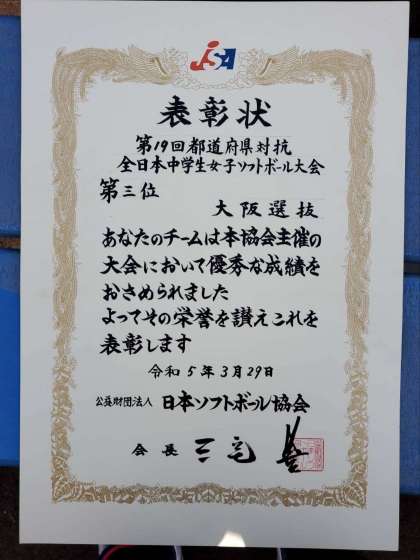 JSA
表彰状
第19回都道府県対抗
全日本中学生女子ソフトボール大会
第三位
大阪選抜
あなたのチームは本協会主催の
大会において優秀な成績を
おさめられました
よってその栄誉を讃えこれを
表彰します
令和5年3月29日
公益財団法人 日本ソフトボール協会
会長 三宅 豊